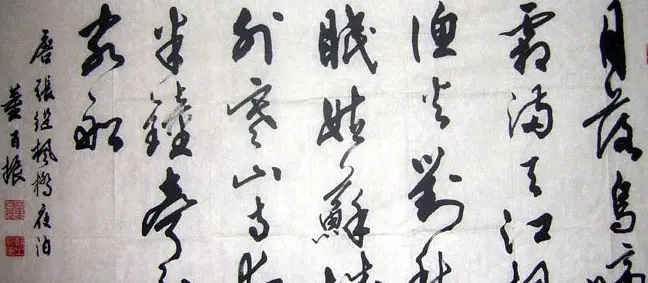 月落烏啼
霜满天江
渔火對
眠姑蘇城
外寒山寺
半鐘聲
客船
唐張继枫橋夜泊
董百振